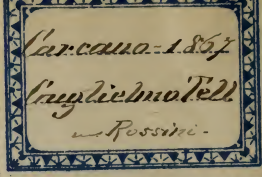 Carcano - 1867
Guglielmo Tell
Rossini -